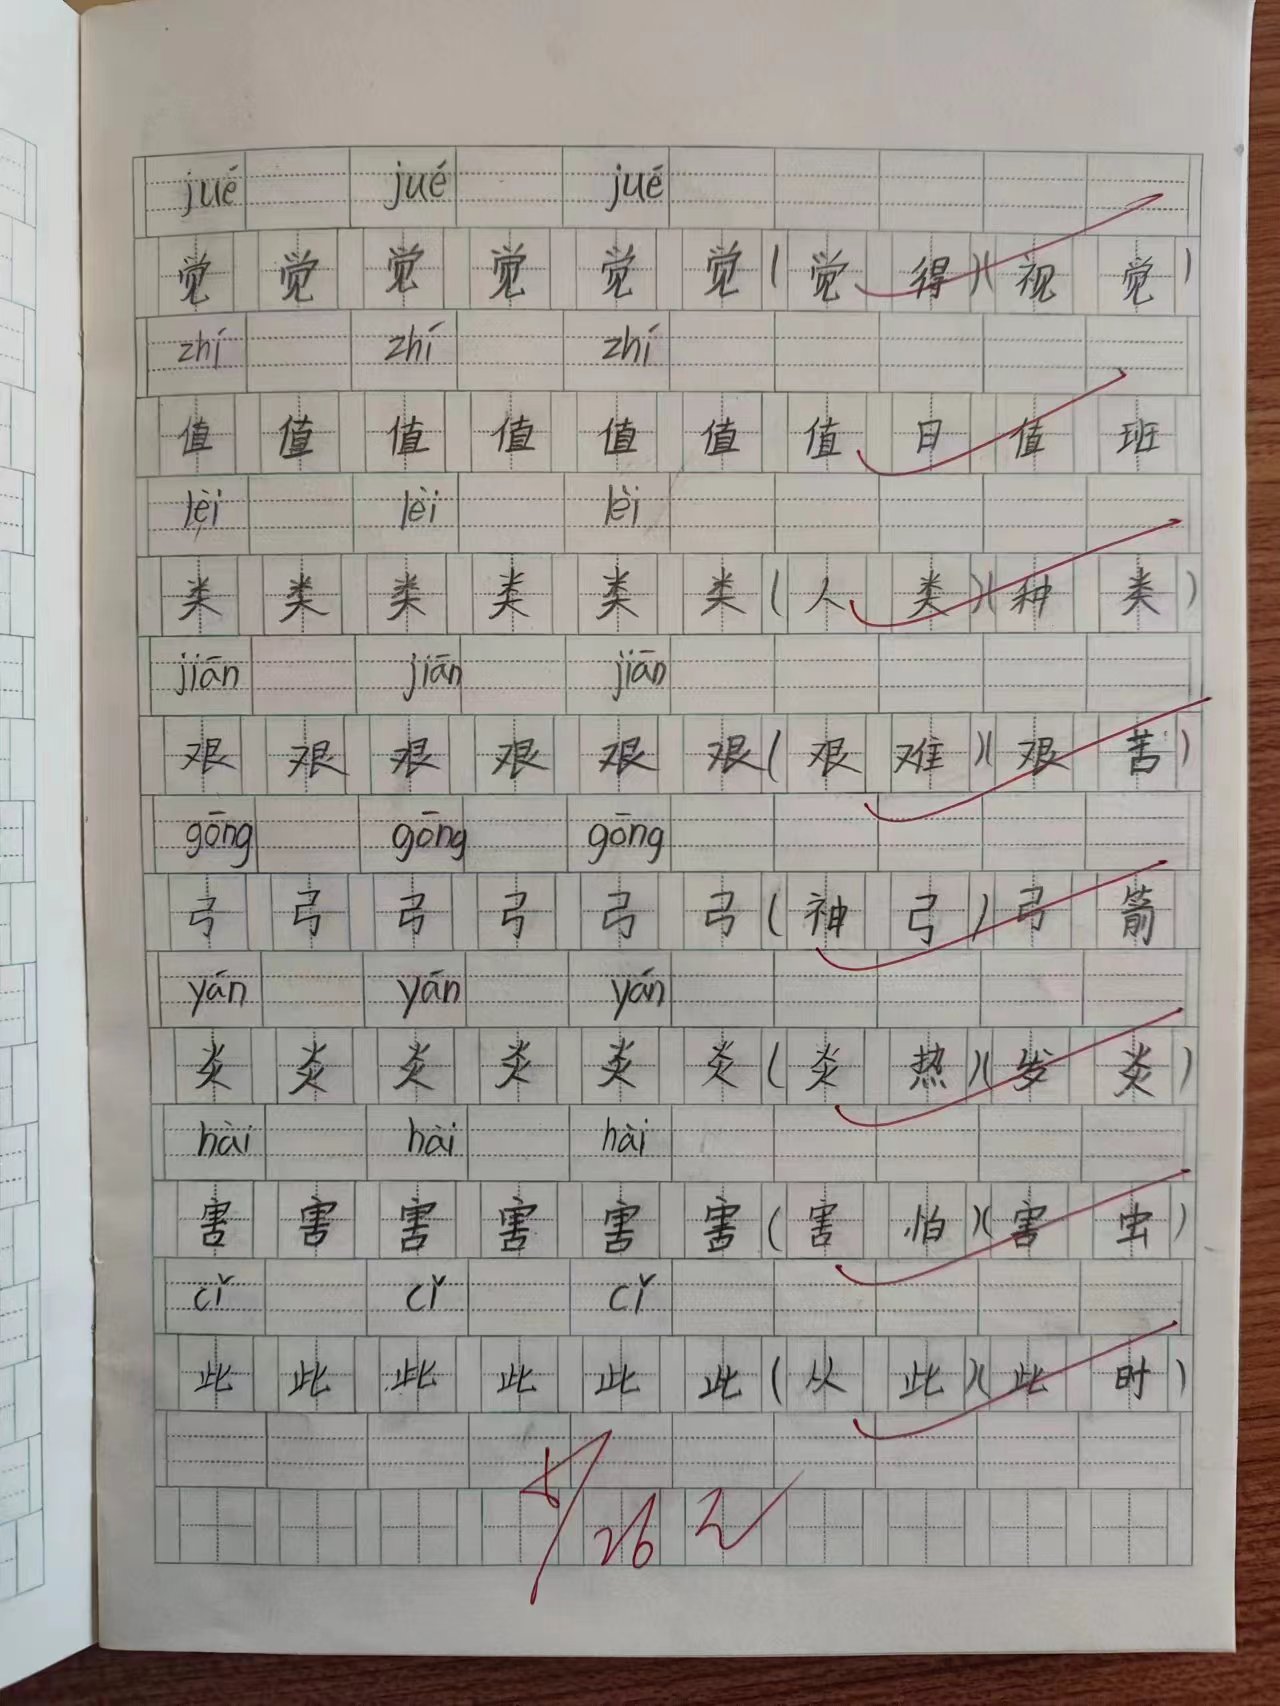 jué jué jué
觉 觉 觉 觉 觉 觉 (觉 得)(视 觉)
zhí zhí zhí
值 值 值 值 值 值 值 日 值 班
lèi lèi lèi
类 类 类 类 类 类 (人 类)(种 类)
jiān jiān jiān
艰 艰 艰 艰 艰 艰 (艰 难)(艰 苦)
gōng gōng gōng
弓 弓 弓 弓 弓 弓 (神 弓) 弓 箭
yán yán yán
炎 炎 炎 炎 炎 炎 (炎 热)(发 炎)
hài hài hài
害 害 害 害 害 害 (害 怕)(害 虫)
cǐ cǐ cǐ
此 此 此 此 此 此 (从 此)(此 时)